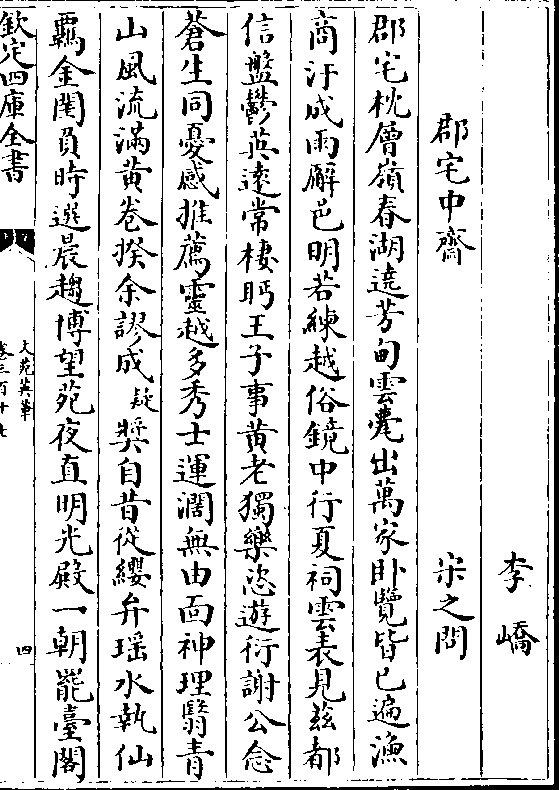 李嶠
郡宅中齋　宋之問
郡宅枕層嶺春湖遶芳甸雲甍出萬家卧覽皆已遍漁
商汗成雨廨邑明若練越俗鏡中行夏祠雲表見兹都
信盤鬱英逺常棲眄王子事黄老獨樂恣遊衍謝公念
蒼生同憂感推薦靈越多秀士運濶無由面神理翳青
山風流滿黄卷揆余謬成疑奬自昔從纓弁瑶水執仙
羈金閨負時選晨趨博望苑夜直明光殿一朝罷臺閣
欽定四庫全書
文苑英華
卷三百十七
四